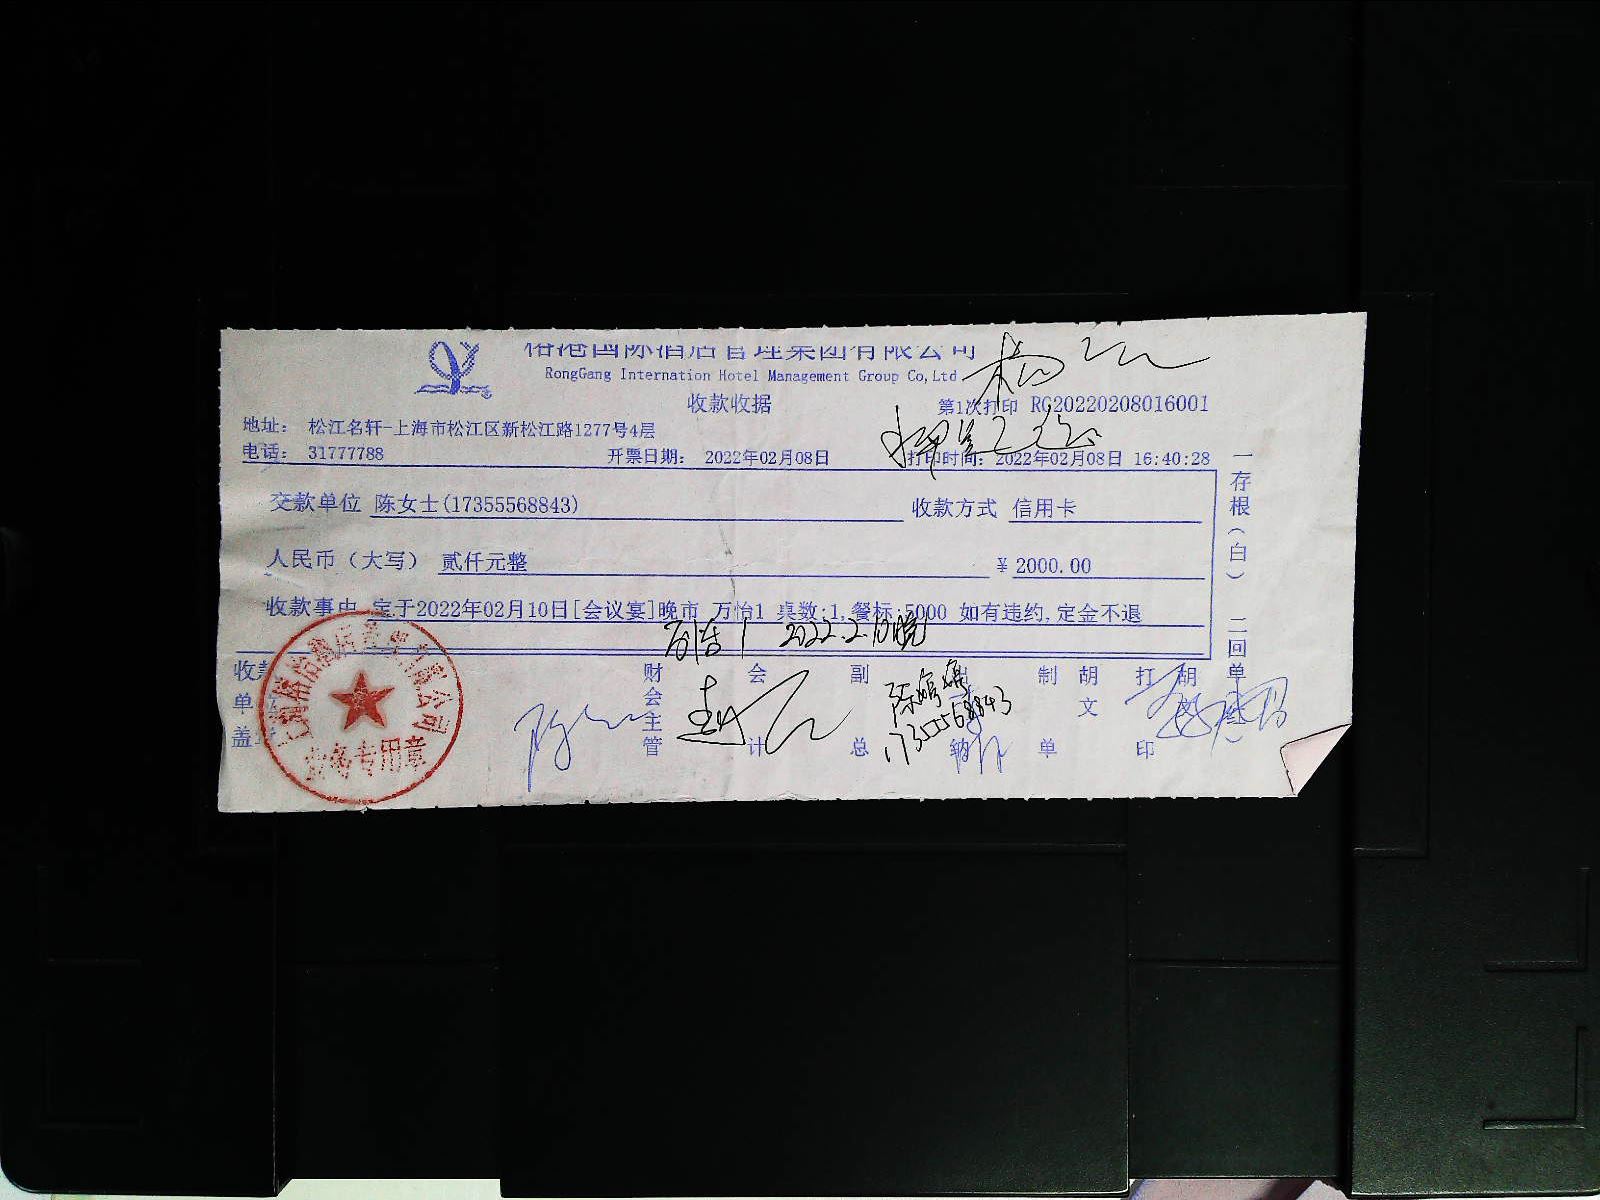 榕港国际酒店管理集团有限公司
RongGang Internation Hotel Management Group Co,Ltd
收款收据
第1次打印 RG20220208016001
地址： 松江名轩-上海市松江区新松江路1277号4层
电话： 31777788 开票日期： 2022年02月08日 打印时间：2022年02月08日 16:40:28
交款单位 陈女士(17355568843) 收款方式 信用卡
人民币（大写） 贰仟元整 ￥2000.00
收款事由 定于2022年02月10日[会议宴]晚市 万怡1 桌数:1,餐标:5000 如有违约,定金不退
万怡1 2022.2.10晚
收款
单
盖
财会主管
会计
副总
出纳
制单
胡文
打印
胡
17355568843
一存根（白）二回单
有限公司
业务专用章